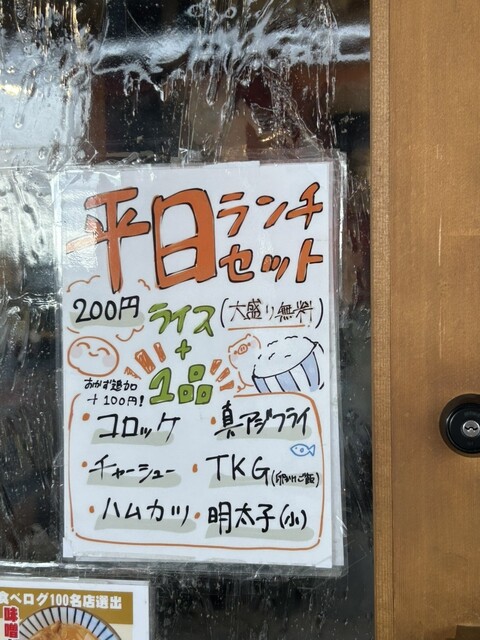 平日ランチ
セット
200円 ライス (大盛り無料)
+
1品
おかず追加
+100円!
・コロッケ ・真アジフライ
・チャーシュー ・TKG(卵かけご飯)
・ハムカツ ・明太子(小)
食べログ100名店選出
味噌